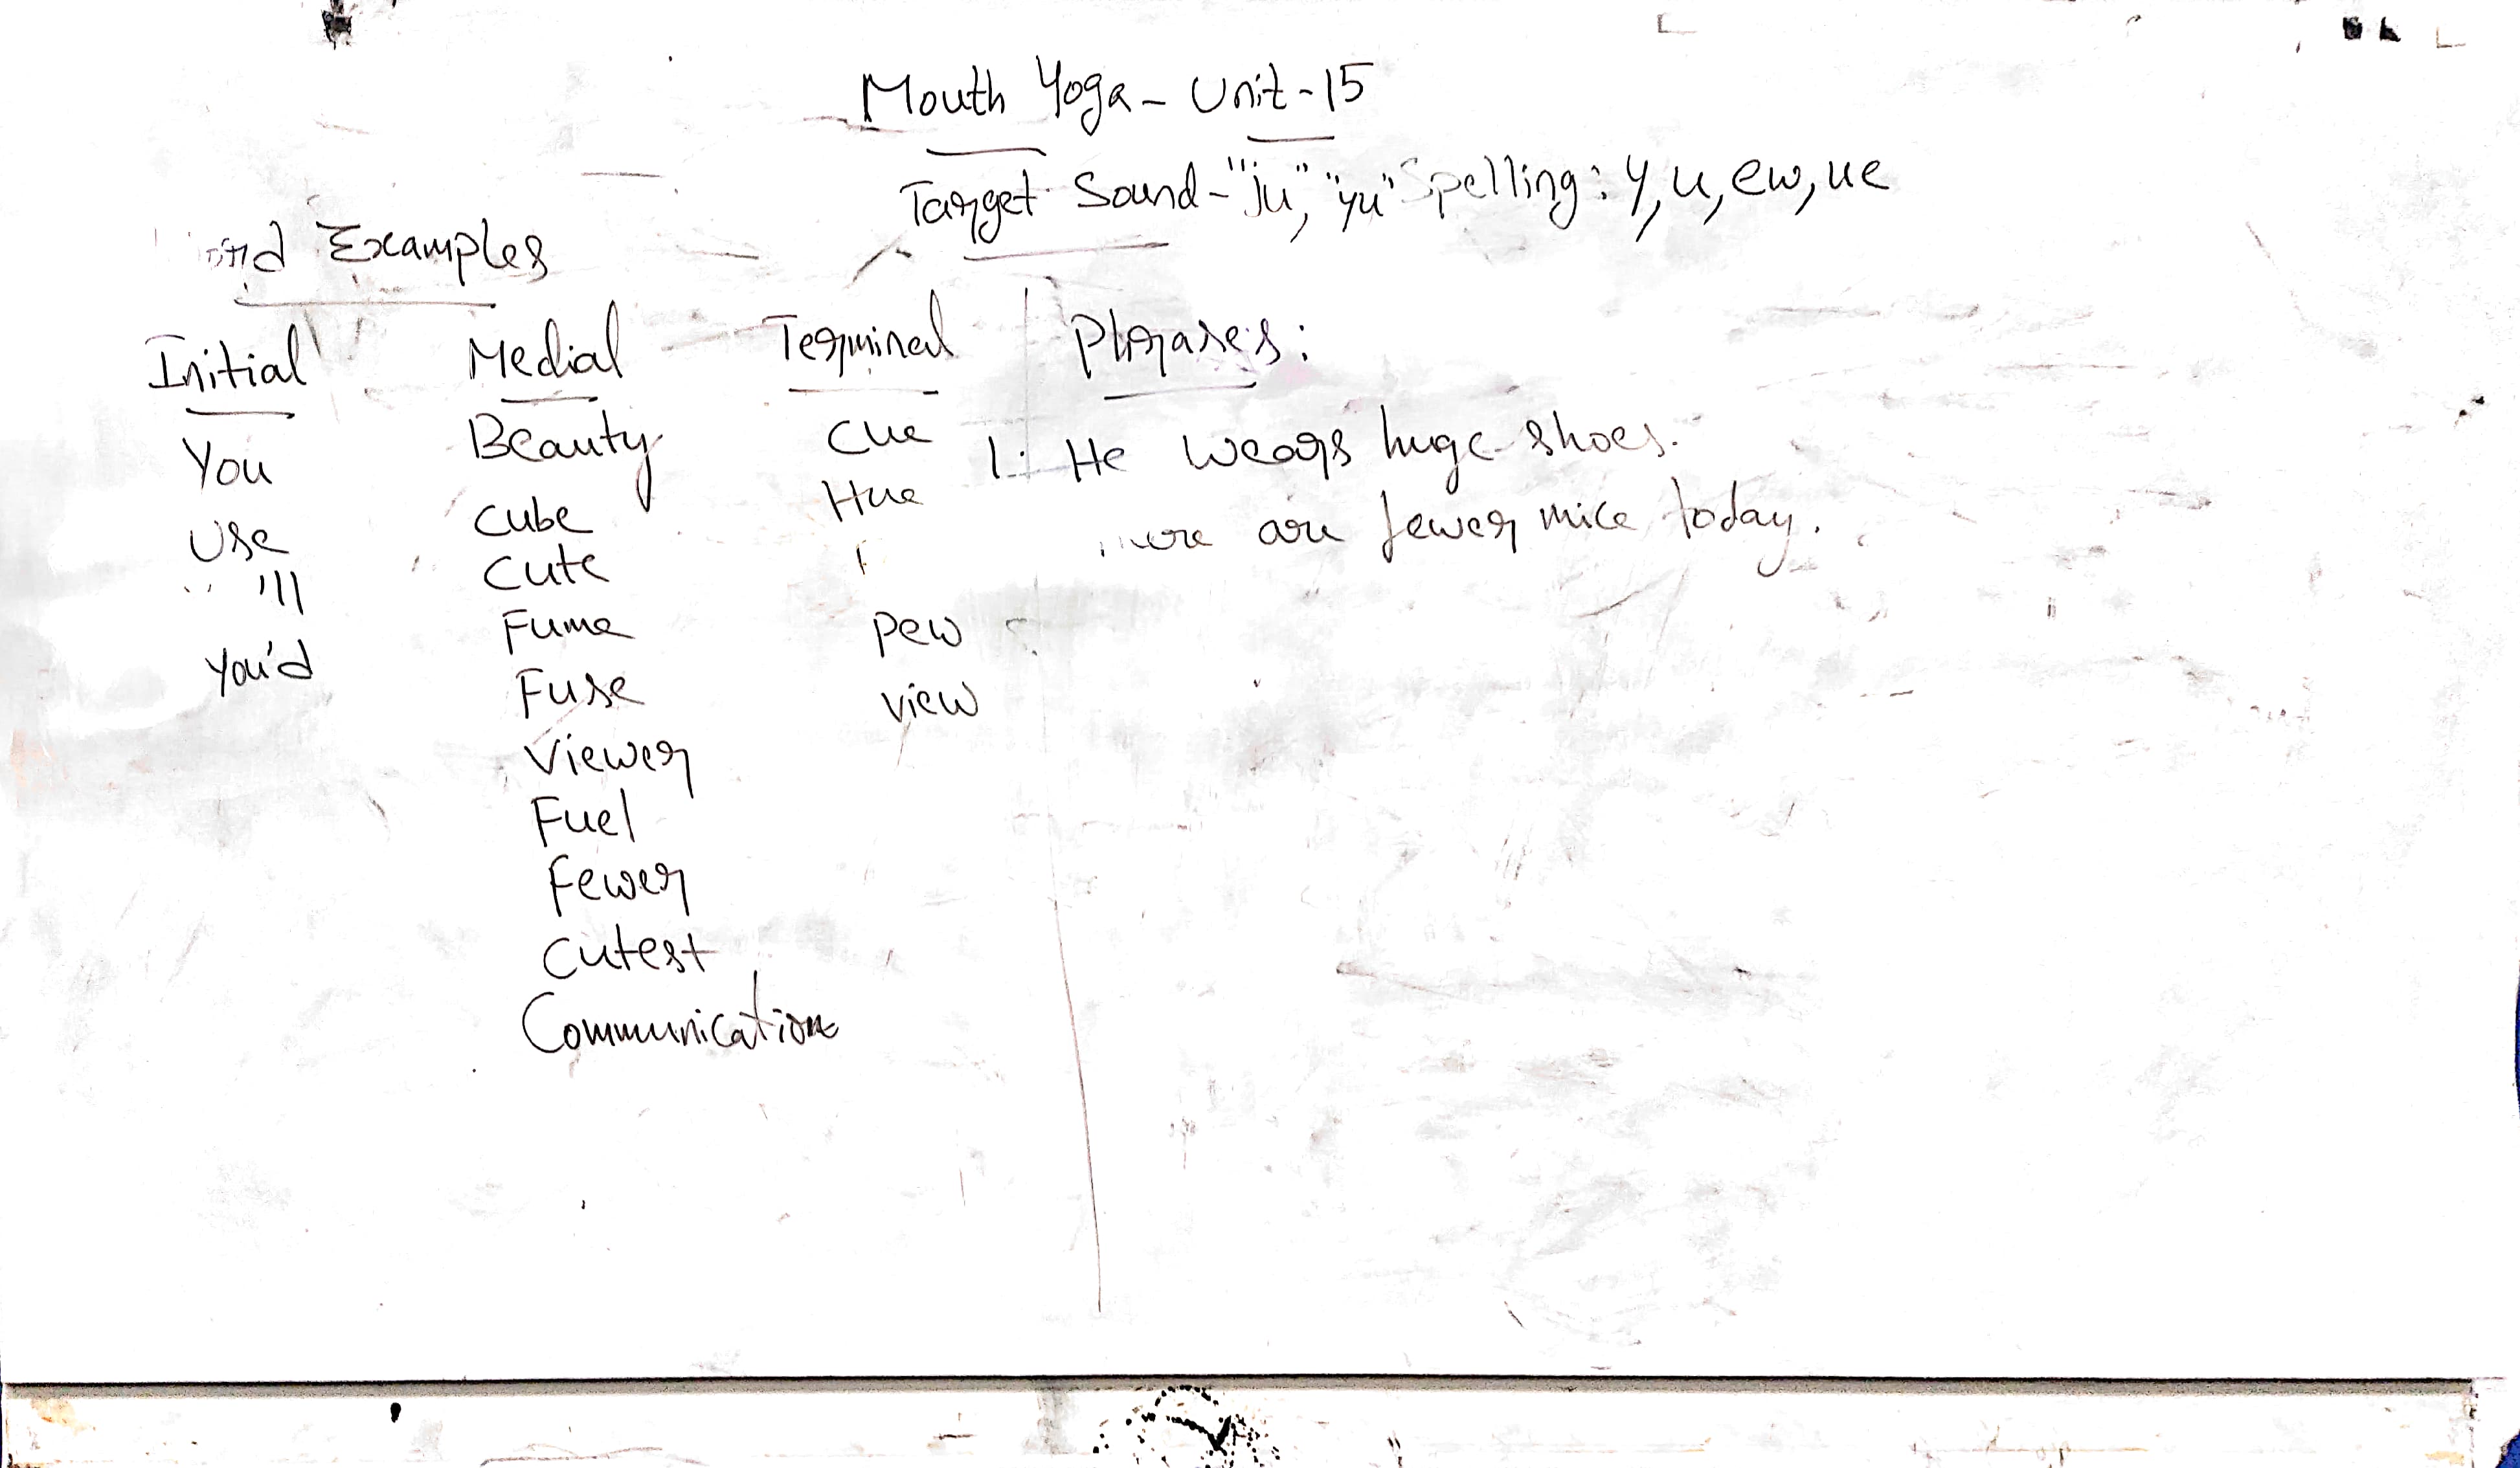 Mouth Yoga - Unit-15
Target Sound - "ju", "yu" Spelling: Y, u, ew, ue
Examples
Initial
You
Use
'll
you'd
Medial
Beauty
Cube
Cute
Fume
Fuse
Viewer
Fuel
Fewer
Cutest
Communication
Terminal
Cue
Hue
pew
view
Phrases:
1. He wears huge shoes.
are fewer mice today.